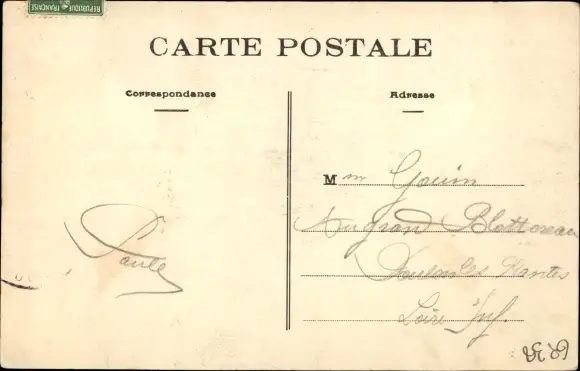 REPUBLIQUE FRANÇAISE
CARTE POSTALE
Correspondance
Adresse
Mme Gouin
Au grand Blottereau
Doulon les Nantes
Loire Inf.
Paule